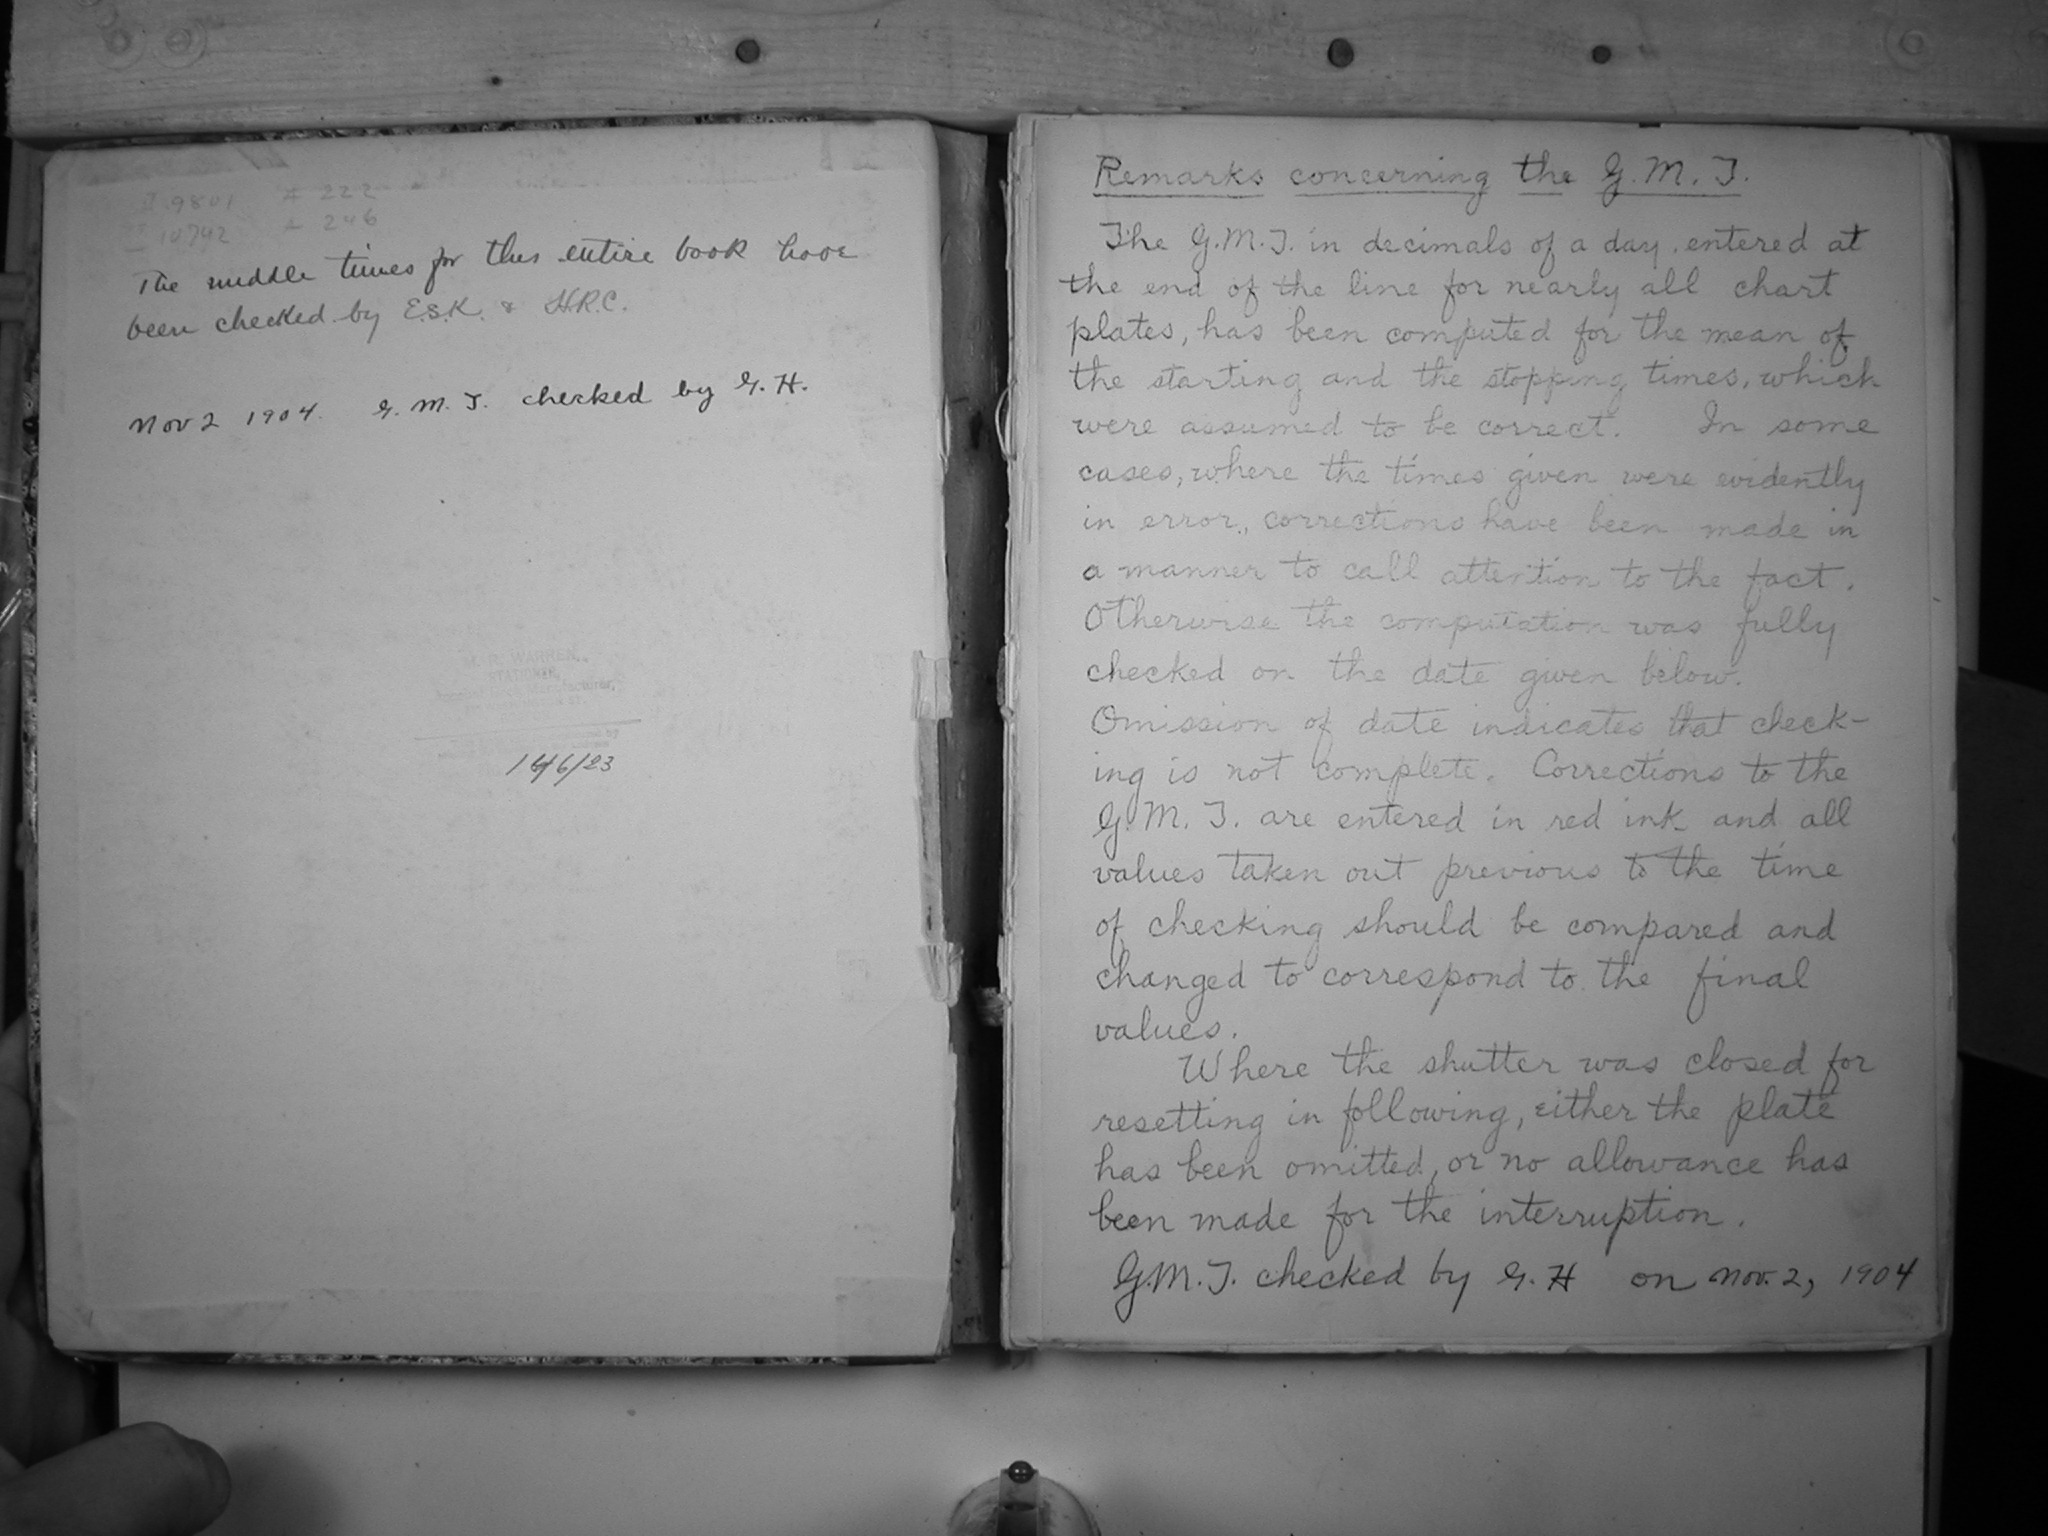 I 9801 # 222
I 10742 - 246
The middle times for this entire book have
been checked by E.S.K. & H.R.C.
Nov 2 1904. G.M.T. checked by G.H.
WARREN,
STATIONER,
Manufacturer,
Remarks concerning the G.M.T.
The G.M.T. in decimals of a day, entered at
the end of the line for nearly all chart
plates, has been computed for the mean of
the starting and the stopping times, which
were assumed to be correct. In some
cases, where the times given were evidently
in error, corrections have been made in
a manner to call attention to the fact.
Otherwise the computation was fully
checked on the date given below.
Omission of date indicates that check-
ing is not complete. Corrections to the
G.M.T. are entered in red ink and all
values taken out previous to the time
of checking should be compared and
changed to correspond to the final
values.
Where the shutter was closed for
resetting in following, either the plate
has been omitted, or no allowance has
been made for the interruption.
G.M.T. checked by G.H on Nov. 2, 1904